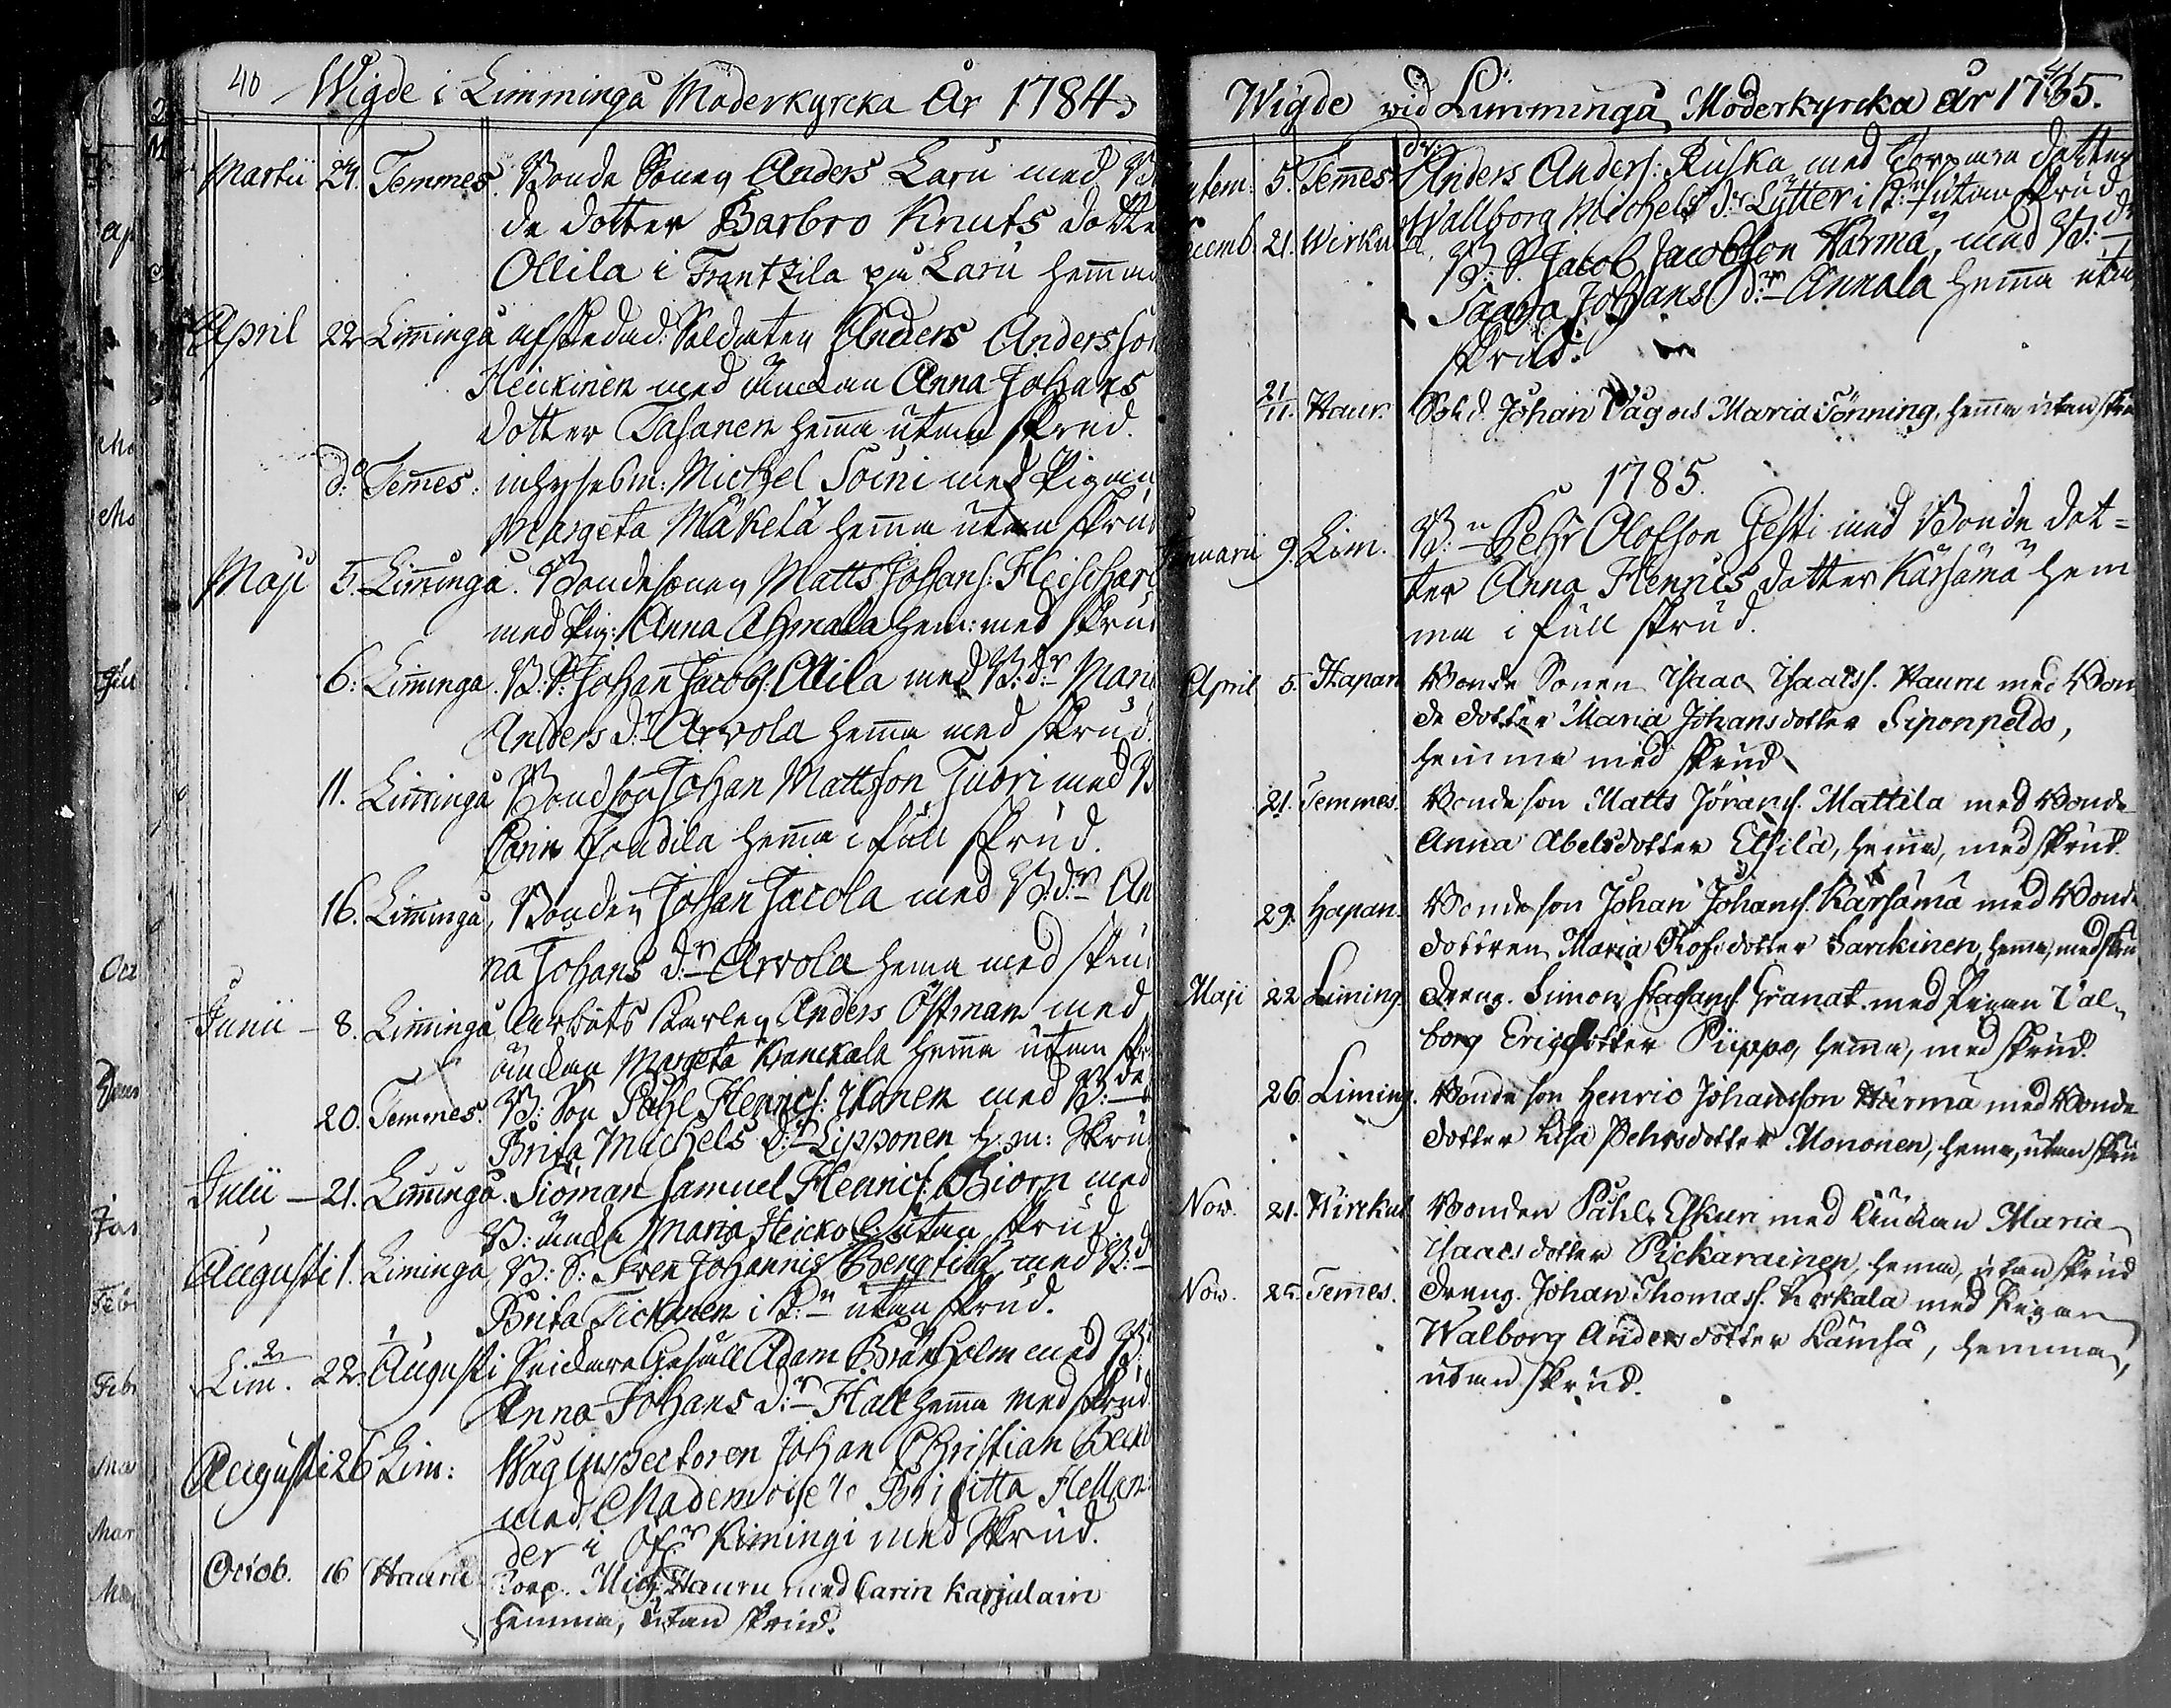 40 Wigde i Limminga Moderkyrcka År 1784
Martii 24. Temmes. Bonde Sonen Anders Laru med B
de dotter Barbro Knuts dotte
Ollila i Frantzila på Laru hemma
April 22 Liminga afskedad: Soldaten Anders Andersson
Heickinen med änckan Anna Johans
dotter Tasanen hema utan skrud.
do: Temes: inhysesm: Michel Soini med Pigan
Margeta Mäkelä hema utan skrud
Maji 5. Liminga. Bondesonen Matts Johans:
med Pig: Anna Ahmala hem: med skrud
6: Liminga. B: S: Johan Jacobs: Ollila med B: dr Mari
Anders dr Arvola hema med skrud.
11. Liminga Bondson Johan Mattsson Tuori med B
Carin hema i full skrud.
16. Liminga, Bonden Johan Jacola med B: dr An
na Johans dr Arvola hema med skrud
Junii 8. Liminga, Arbets Karlen Anders Östman med
änckan Margeta hema utan skr
20. Temmes. B: Son Påhl Henrics: med B: de
Brita Michels dr Lipponen h: m: Skrud
Julii 21. Liminga. Siöman Samuel Henrics: Biörn med
B: Maria utan skrud
Augusti 1. Liminga, B: S: Sven Johannis Bengtila med B: d
Brita Tickanen i B:n utan skrud.
Lim. 22. Augusti Gesäll Adam Branholm med B:
Anna Johans dr Hall hema med skrud
Augusti 26 Lim: Wåginspectoren Johan Christian Beck
med Mademoiselle Brigitta Hellan
der i Öfr Kimingi med Skrud.
Octob. 16 Hauru Corp. Mich: Hauru med Carin Karjulain
hemma, utan skrud.
Wigde vid Limminga Moderkyrcka år 1785.
tem: 5. Temes Anders Anders: Ruska med Torpare dotter
Wallborg Michels dr Lytter i B:n utan skrud
cemb. 21. Wirkula. B: S. Jacob Jacobsson Härmä, med B: dr
Johans dr Annala hema utan
skrud.
21/11. Haur. Sold. Johan Våg och Maria Tönning, hema utan skru
1785.
anuarii 9. Lim. B:n Pehr Olofson Pesti med Bonde dot=
ter Anna Henrics dotter Kärsämä hem
ma i full skrud.
April 5. Hapan Bonde Sonen Isaac Isaacss. Hauru med Bon
de dotter Maria Johansdotter Siponpeldo,
hemma med skrud
21. Temmes. Bonde son Matts Jörans. Mattila med Bonde
Anna Abelsdotter Elsilä, hema, med skrud.
29. Hapan. Bonde son Johan Johans. Kärsämä med Bond
dottren Maria Olofsdotter Sarckinen, hema, med skru
Maji 22 Liming. Dreng. Simon Stachans. Granat med Pigan Val
borg Ericsdotter Piippo, hema, med skrud.
26. Liming. Bonde son Henric Johansson Härmä med Bonde
dotter Lisa Pehrsdotter Mononen, hema, utan skru
Nov. 21. Wirckul Bonden Påhl Eskuri med Änckan Maria
Isaacs dotter Pickarainen, hema, utan skrud
Nov. 25. Temes. Dreng. Johan Thomass. Korkala med Pigan
Walborg Andersdotter Lämsä, hemma,
utan skrud.